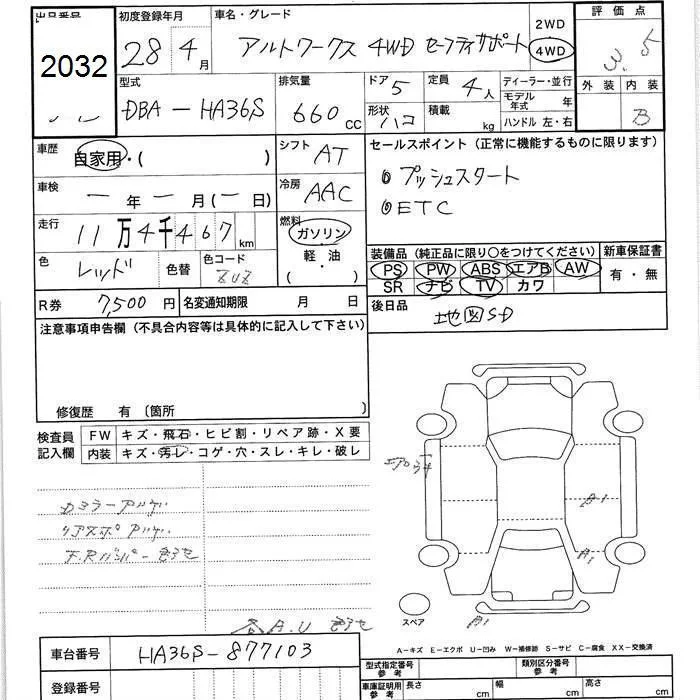 出品番号 初度登録年月 車名・グレード 2WD 評価点
2032 28年4月 アルトワークス 4WD セーフティサポート 4WD 3.5
型式 排気量 ドア 5 定員 4人 ディーラー・並行 外装 内装
DBA-HA36S 660cc 形状 ハコ 積載 kg モデル年式 年 ハンドル 左・右 B
車歴 自家用・( ) シフト AT セールスポイント(正常に機能するものに限ります)
車検 ー年ー月(ー日) 冷房 AAC ◎プッシュスタート
走行 11万4千467km 燃料 ガソリン ◎ETC
色 レッド 色替 色コード ZUZ 軽油 ( ) 装備品(純正品に限り○をつけてください) 新車保証書
PS PW ABS エアB AW 有・無
SR ナビ TV カワ
R券 7,500円 名変通知期限 月 日 後日品
地図SD
注意事項申告欄(不具合内容等は具体的に記入して下さい)
修復歴 有 〔箇所 〕
検査員記入欄 FW キズ・飛石・ヒビ割・リペア跡・X要
内装 キズ・汚レ・コゲ・穴・スレ・キレ・破レ
A1
リアスポ
F.Rバンパー色あせ
A1
スペア A1
各A.U 色あせ
A-キズ E-エクボ U-凹み W-補修跡 S-サビ C-腐食 XX-交換済
車台番号 HA36S-877103
型式指定番号 類別区分番号
登録番号 車庫証明用 長さ cm 幅 cm 高さ cm